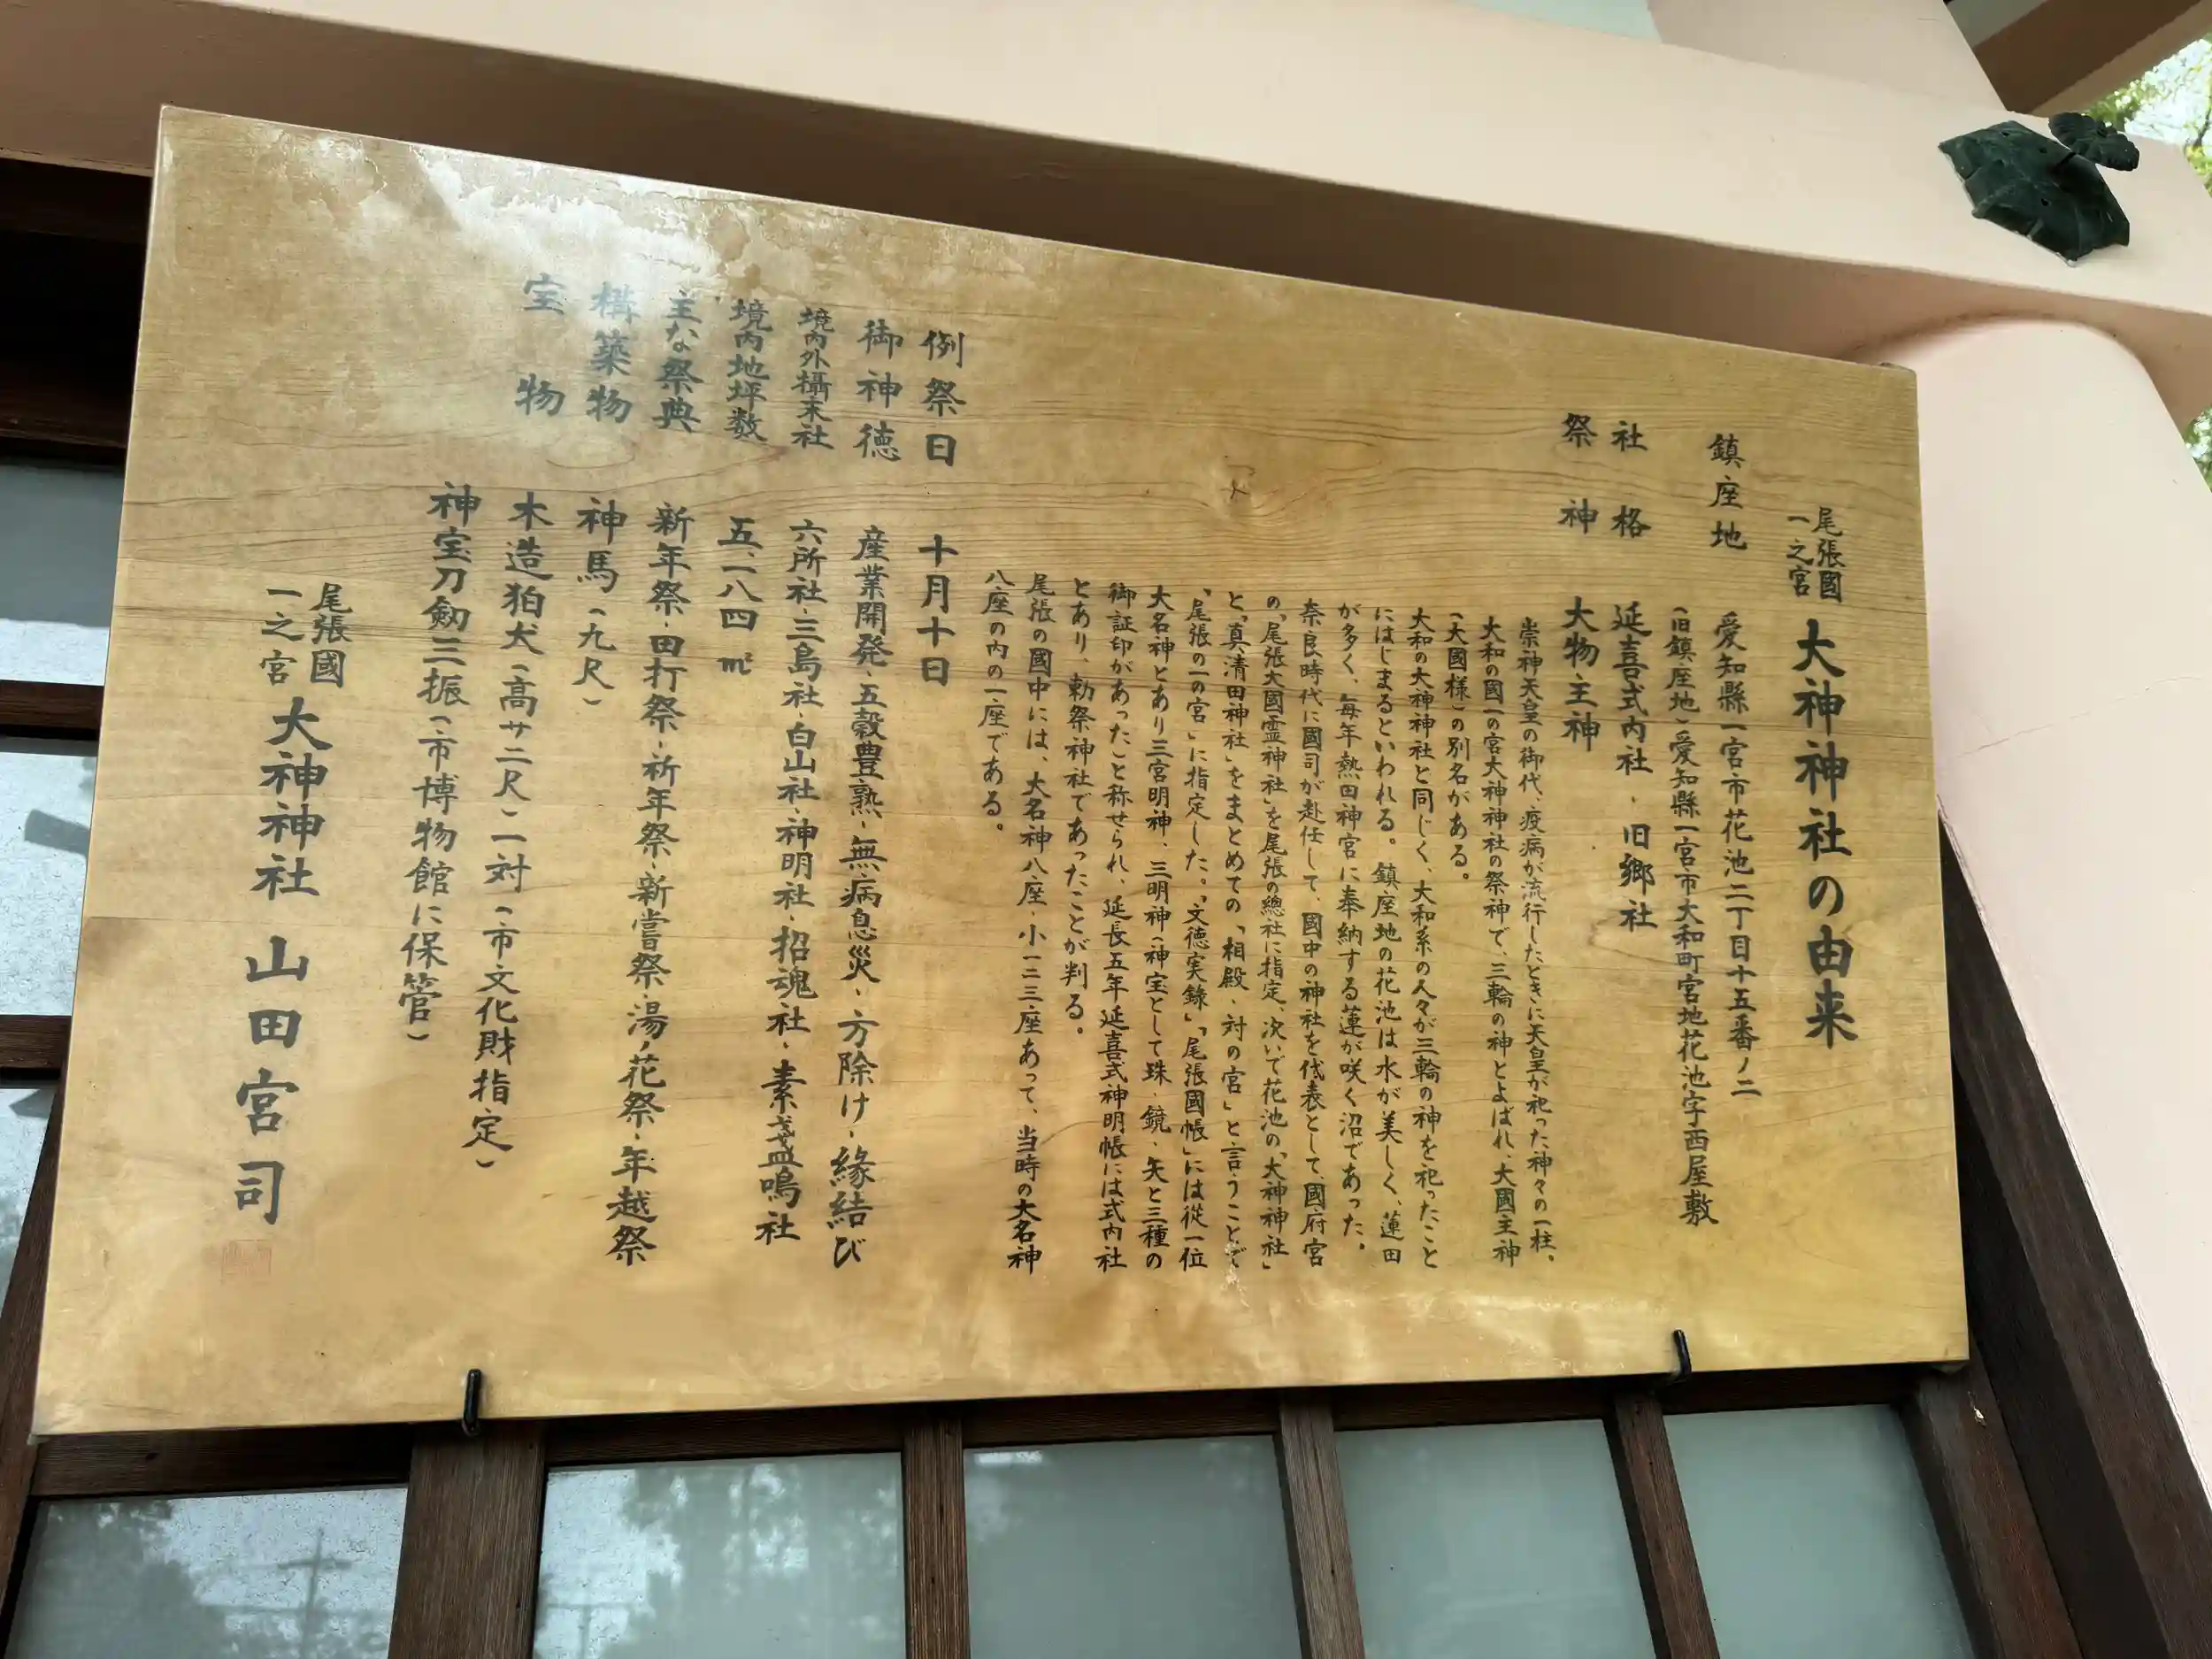 尾張國一之宮 大神神社の由来
鎮座地 愛知縣一宮市花池二丁目十五番ノ二
(旧鎮座地)愛知縣一宮市大和町宮地花池字西屋敷
社格 延喜式内社・旧郷社
祭神 大物主神
崇神天皇の御代、疫病が流行したときに天皇が祀った神々の一柱。
大和の國一の宮大神神社の祭神で、三輪の神とよばれ、大國主神
(大國様)の別名がある。
大和の大神神社と同じく、大和系の人々が三輪の神を祀ったこと
にはじまるといわれる。鎮座地の花池は水が美しく、蓮田
が多く、毎年熱田神宮に奉納する蓮が咲く沼であった。
奈良時代に國司が赴任して、國中の神社を代表として、國府宮
の「尾張大國霊神社」を尾張の總社に指定、次いで花池の「大神神社」
と「真清田神社」をまとめての「相殿、対の宮」と言うことで
「尾張の一の宮」に指定した。「文徳実錄」「尾張國帳」には従一位
大名神とあり三宮明神、三明神(神宝として珠・鏡・矢と三種の
御証印があった)と称せられ、延長五年延喜式神明帳には式内社
とあり、勅祭神社であったことが判る。
尾張の國中には、大名神八座・小一二三座あって、当時の大名神
八座の内の一座である。
例祭日 十月十日
御神徳 産業開発・五穀豊熟・無病息災・方除け・緣結び
境内外攝末社 六所社・三島社・白山社・神明社・招魂社・素盞鳴社
境内地坪数 五、一八四㎡
主な祭典 新年祭・田打祭・祈年祭・新嘗祭・湯ノ花祭・年越祭
構築物 神馬(九尺)
宝物 木造狛犬(高サ二尺)一対(市文化財指定)
神宝刀劔三振(市博物館に保管)
尾張國一之宮 大神神社 山田宮司